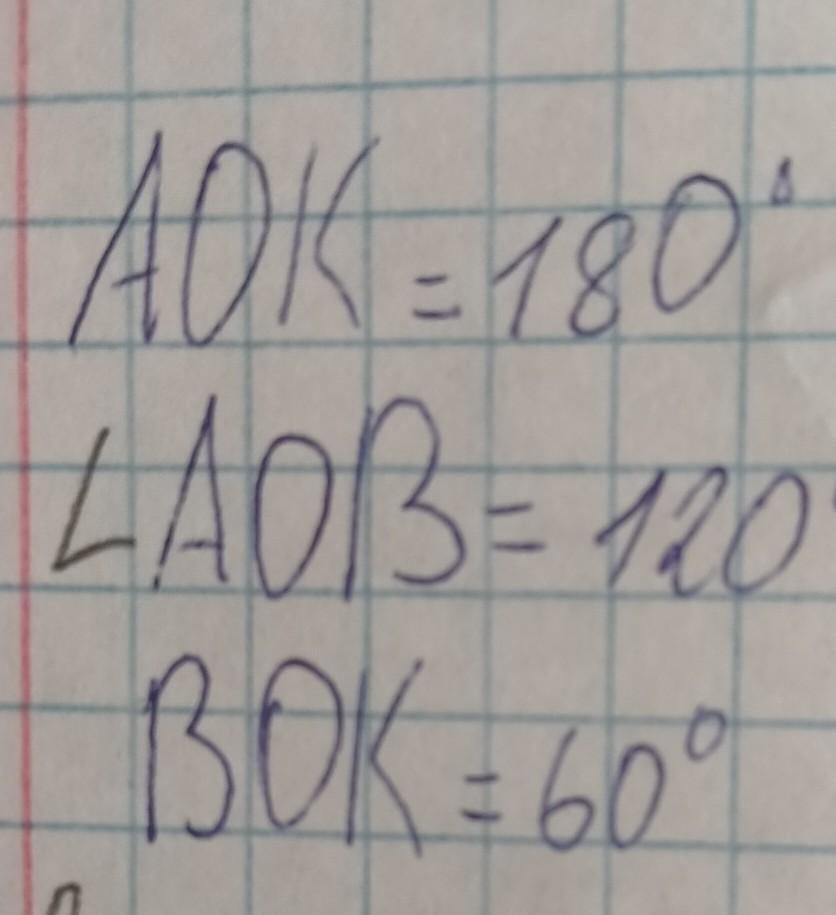 AOK = 180°
∠AOB = 120°
BOK = 60°